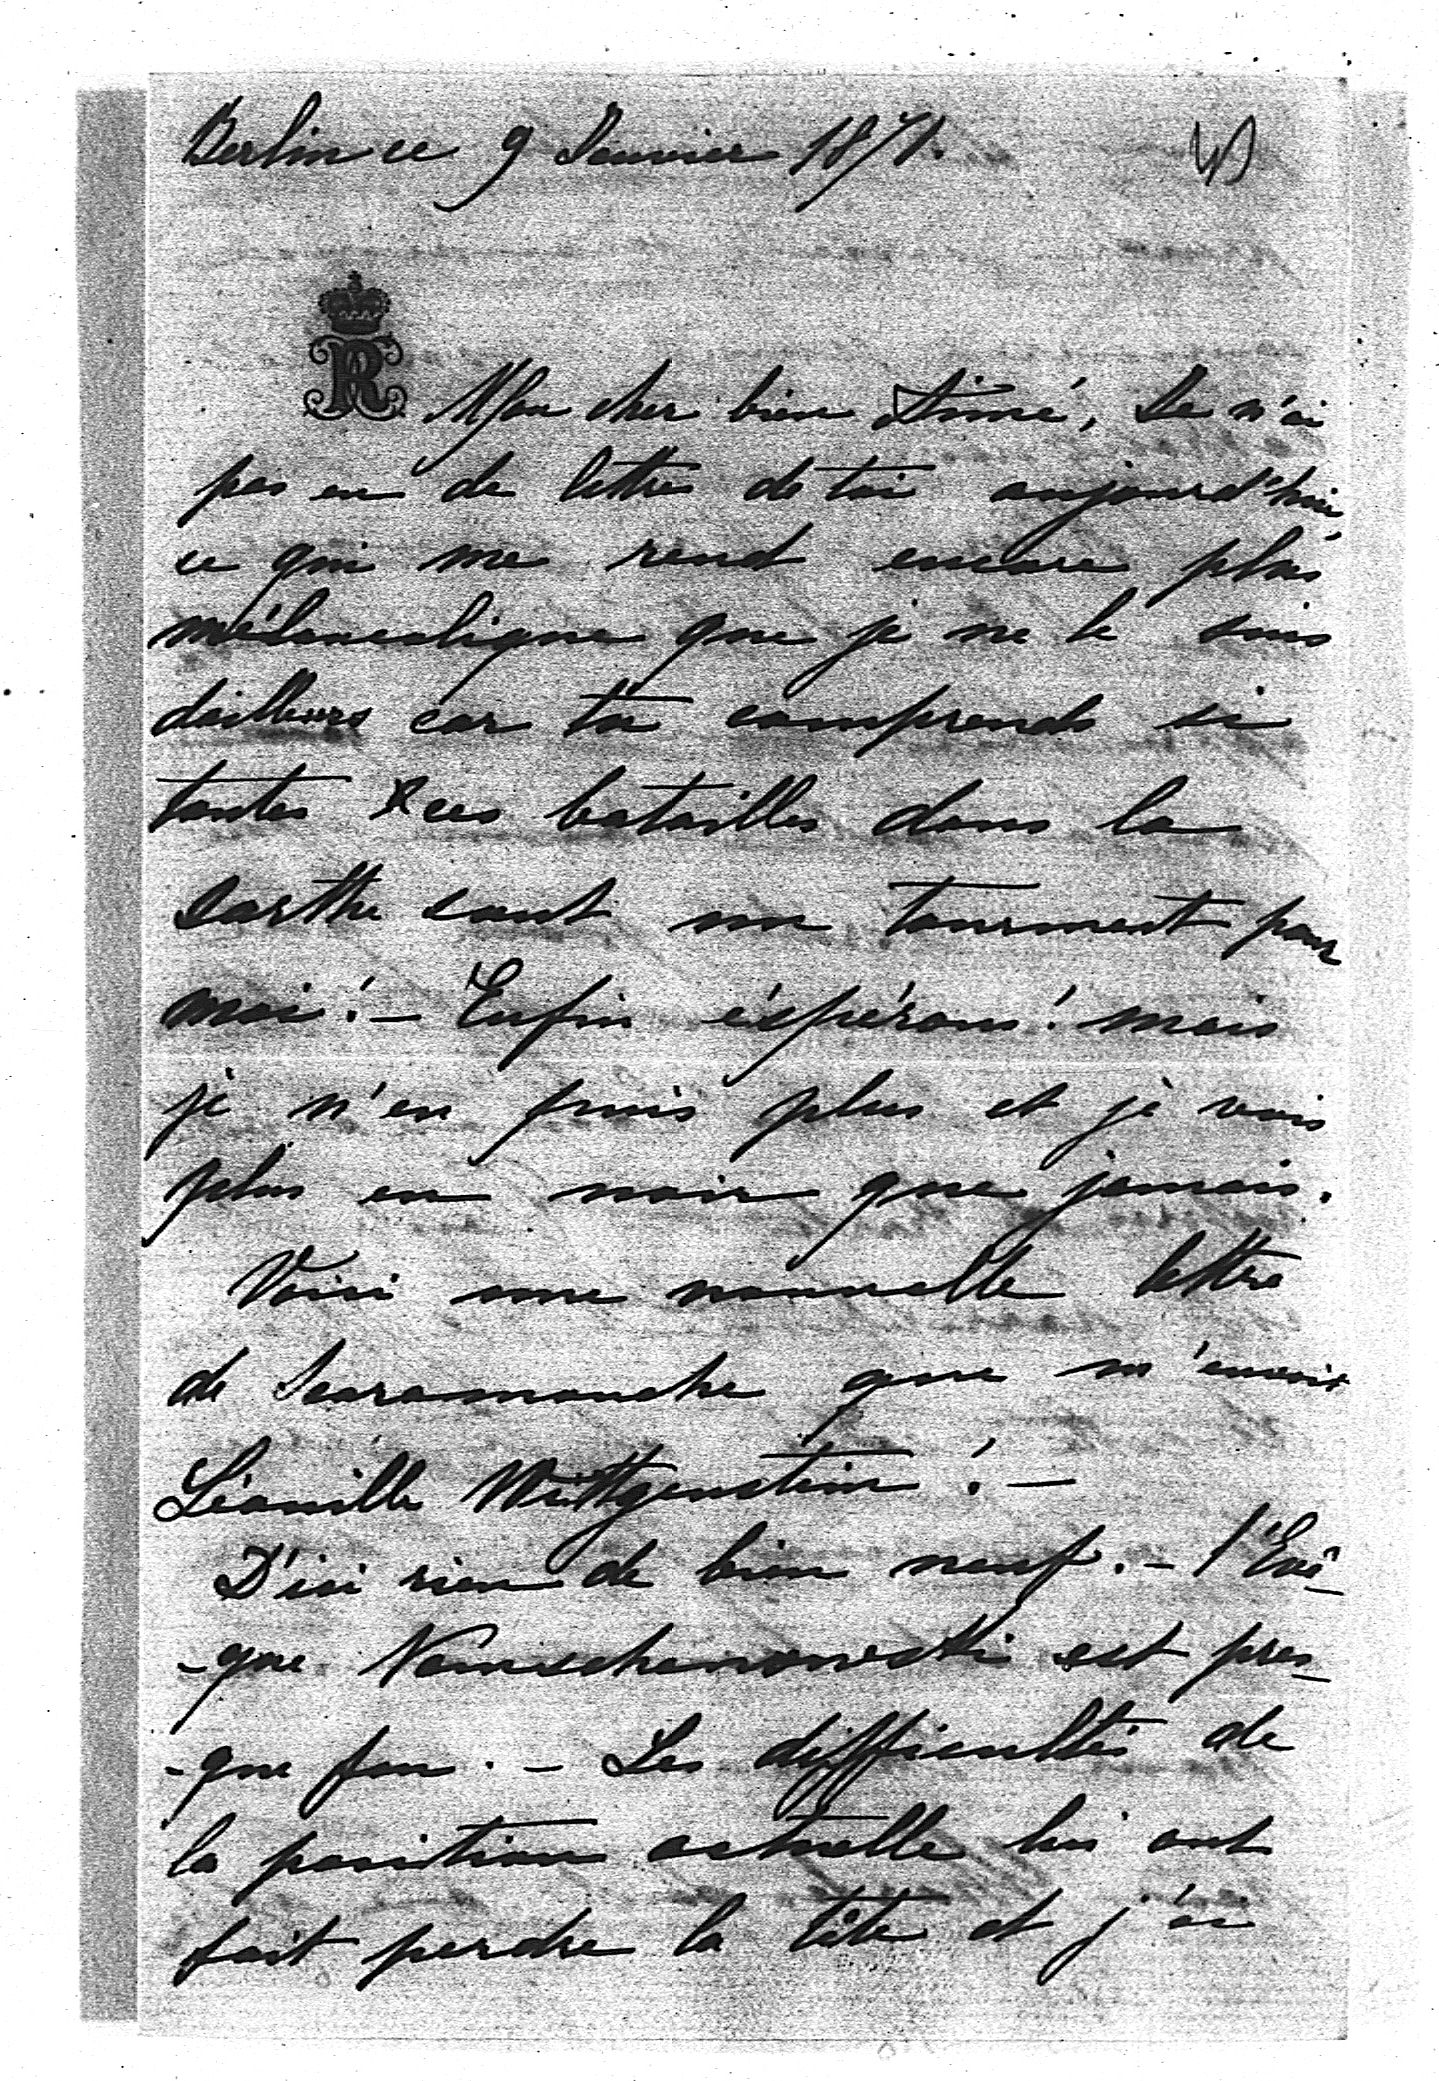 Berlin ce 9 Janvier 1871.
R
Mon cher bien Aimé, Je n'ai
pas eu de lettre de toi aujourd'hui
ce qui me rend encore plus
mélancolique que je ne le suis
dailleurs car tu comprends si
toutes ces batailles dans la
Sarthe sont un tourment pour
moi! – Enfin éspérons! mais
je n'en puis plus et je vois
plus en noir que jamais.
Voici une nouvelle lettre
de Scaramouche que m'envoie
Léonille Wittgenstein! –
D'ici rien de bien neuf. – l'Evê-
-que est pres-
-que fou. – Les difficultés de
la position actuelle lui ont
fait perdre la tête et j'ai